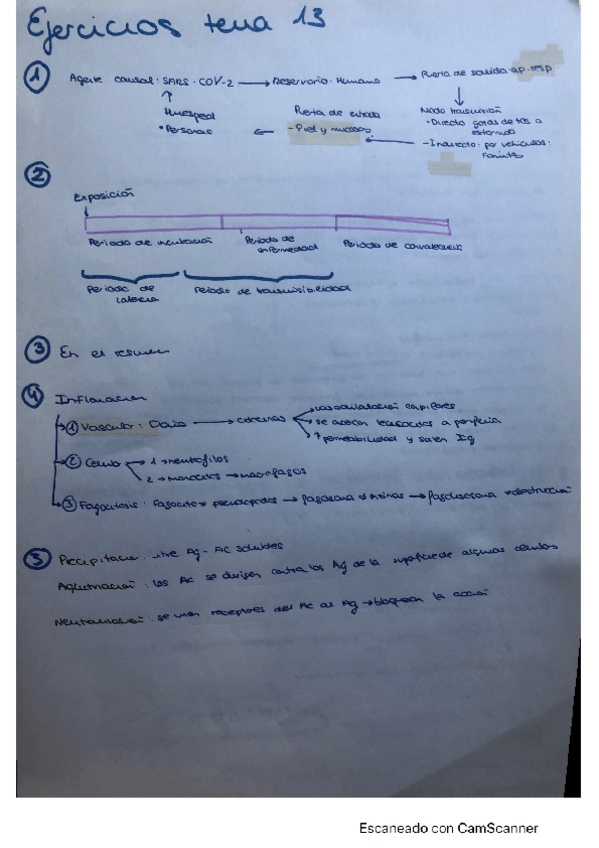 Ejercicios tema 13
① Agente causal: SARS-COV-2 → Reservorio: Humano → Puerta de salida ap. resp
Huesped
• Personas
← Puerta de entrada
- Piel y mucosas
← Modo transmisión
- Directo gotas de tos o
estornudo
- Indirecto: por vehículos:
fomites
②
Exposición
Periodo de incubación Periodo de
enfermedad Periodo de convalecencia
Periodo de
latencia Periodo de transmisibilidad
③ En el resumen
④ Inflamación
→ ① Vascular: Daño → citocinas → vasodilatación capilares
→ se acercan leucocitos a periferia
→ ↑ permeabilidad y salen Ig
→ ② Celular 1 → neutrófilos
2 → monocitos → macrófagos
→ ③ Fagocitosis: Fagocito → pseudópodos → fagosoma → fagolisosoma → destrucción
⑤ Precipitación: entre Ag - AC solubles
Aglutinación: los AC se dirigen contra los Ag de la superficie de algunas células
Neutralización: se unen receptores del AC al Ag → bloquean la acción
Escaneado con CamScanner